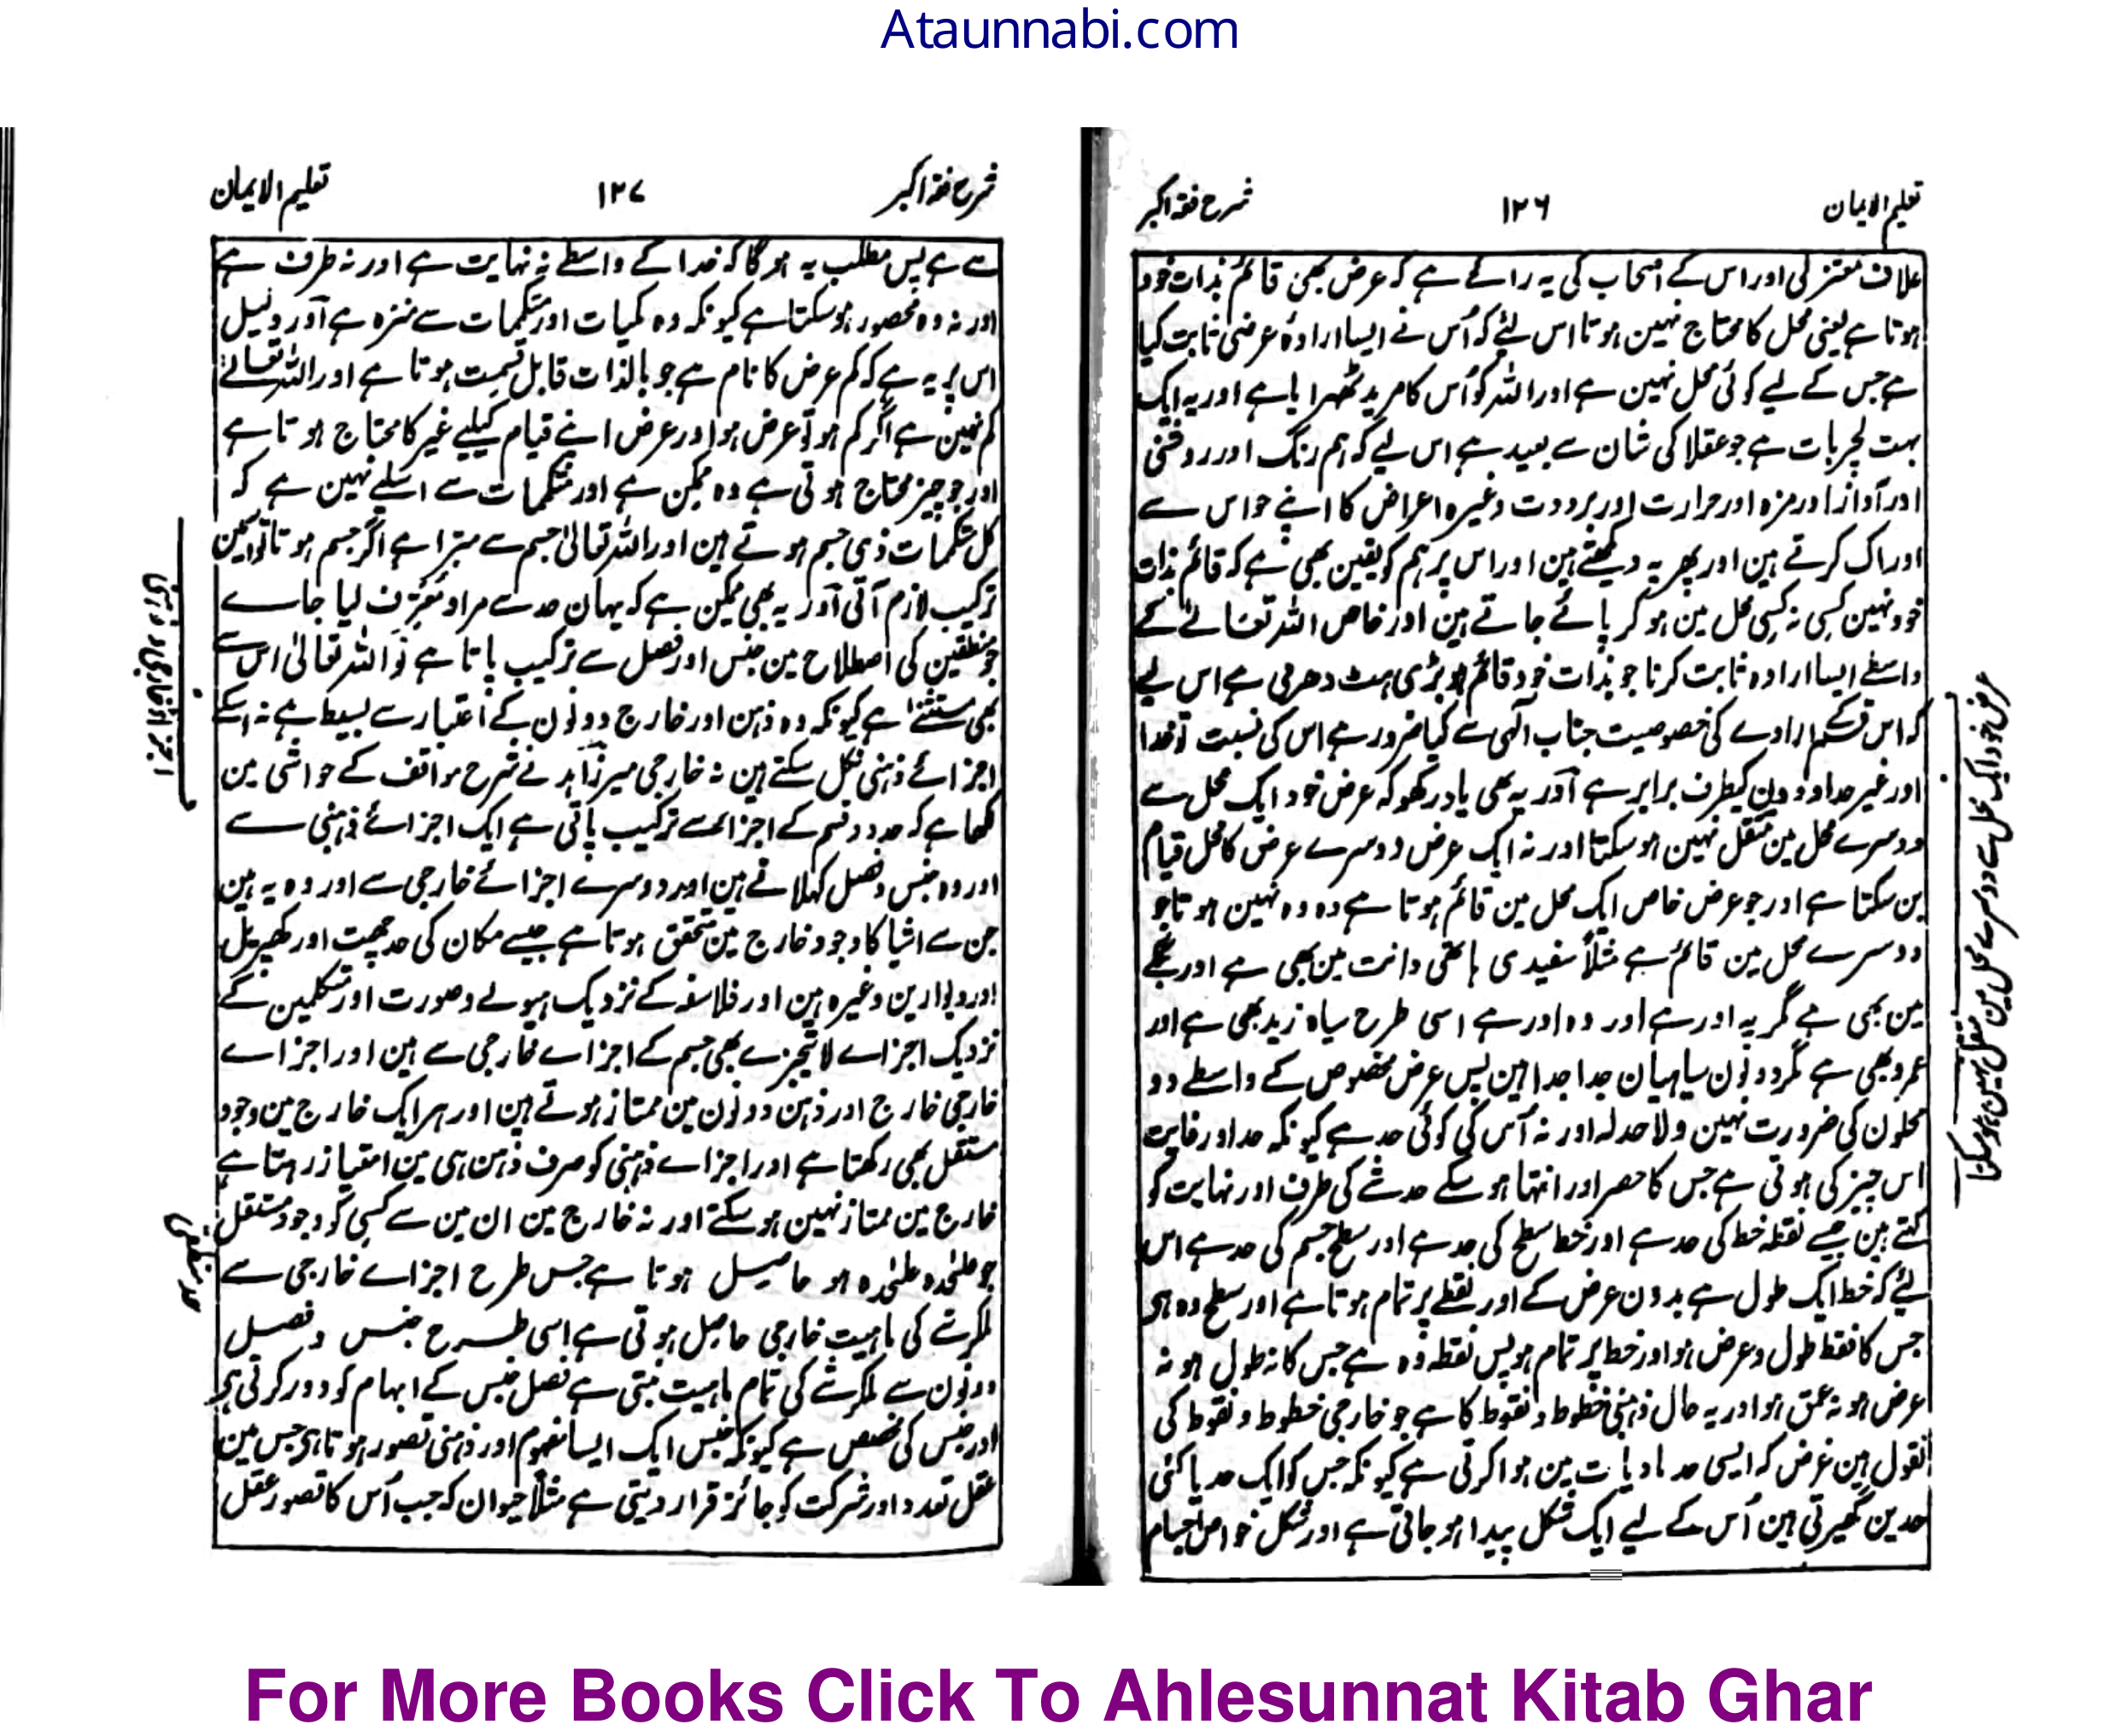 Ataunnabi.com
تعلیم الایمان ۱۲۶ شرح فقہ اکبر
علاف معتزلی اور اس کے اصحاب کی یہ رائے ہے کہ عرض بھی قائم بذات خود
ہوتا ہے یعنی محل کا محتاج نہین ہوتا اس لیئے کہ اُس نے ایسا ارادۂ عرضی ثابت کیا
ہے جس کے لیے کوئی محل نہین ہے اور اللہ کو اُس کا مرید ٹھہرایا ہے اور یہ ایک
بہت لچر بات ہے جو عقلا کی شان سے بعید ہے اس لیے کہ ہم رنگ اور روشنی
اور آواز اور مزہ اور حرارت اور برودت وغیرہ اعراض کا اپنے حواس سے
ادراک کرتے ہین اور پھر یہ دیکھتے ہین اور اس پر ہم کو یقین بھی ہے کہ قائم بذات
خود نہین کسی نہ کسی محل مین ہو کر پائے جاتے ہین اور خاص اللہ تعالے کے
واسطے ایسا ارادہ ثابت کرنا جو بذات خود قائم ہو بڑی ہٹ دھرمی ہے اس لیے
کہ اس قسم ارادے کی خصوصیت جناب الٰہی سے کیا ضرور ہے اس کی نسبت تو خدا
اور غیر خدا دونون کیطرف برابر ہے آور یہ بھی یاد رکھو کہ عرض خود ایک محل سے
دوسرے محل مین منتقل نہین ہوسکتا اور نہ ایک عرض دوسرے عرض کا محل قیام
بن سکتا ہے اور جو عرض خاص ایک محل مین قائم ہوتا ہے وہ وہ نہین ہوتا جو
دوسرے محل مین قائم ہے مثلاً سفیدی ہاتھی دانت مین بھی ہے اور
مین بھی ہے مگر یہ اور ہے اور وہ اور ہے اسی طرح سیاہ زید بھی ہے اور
عمرو بھی ہے مگر دونون سیاہیان جدا جدا ہین پس عرض مخصوص کے واسطے دو
محلون کی ضرورت نہین ولا حد لہ اور نہ اُس کی کوئی حد ہے کیونکہ حد اور غایت
اس چیز کی ہوتی ہے جس کا حصر اور انتہا ہوسکے حد شے کی طرف اور نہایت کو
کہتے ہین جیسے نقطہ خط کی حد ہے اور خط سطح کی حد ہے اور سطح جسم کی حد ہے اس
لیئے کہ خط ایک طول ہے بدون عرض کے اور نقطے پر تمام ہوتا ہے اور سطح وہ ہی
جس کا فقط طول و عرض ہو اور خط پر تمام ہو پس نقطہ وہ ہے جس کا نہ طول ہو نہ
عرض ہو نہ عمق ہو اور یہ حال ذہنی خطوط و نقوط کا ہے جو خارجی خطوط و نقوط کی
نقول ہین غرض کہ ایسی حد مادیات مین ہوا کرتی ہے کیونکہ جس کو ایک حد یا کئی
حدین گھیرتی ہین اُس کے لیے ایک شکل پیدا ہو جاتی ہے اور شکل خواص اجسام
عرض خود ایک محل سے دوسرے محل مین منتقل نہین ہوسکتا
شرح فقہ اکبر ۱۲۷ تعلیم الایمان
سے ہے پس مطلب یہ ہوگا کہ خدا کے واسطے نہ نہایت ہے اور نہ طرف ہے
اور نہ وہ محصور ہوسکتا ہے کیونکہ وہ کمیات اور متکممات سے منزہ ہے آور دلیل
اس پر یہ ہے کہ کم عرض کا نام ہے جو بالذات قابل قسمت ہوتا ہے اور اللہ تعالے
کم نہین ہے اگر کم ہو تو عرض ہو اور عرض اپنے قیام کیلیے غیر کا محتاج ہوتا ہے
اور جو چیز محتاج ہوتی ہے وہ ممکن ہے اور متکممات سے اسلیے نہین ہے کہ
کل متکممات ذی جسم ہوتے ہین اور اللہ تعالیٰ جسم سے مبرا ہے اگر جسم ہوتا تو اسمین
ترکیب لازم آتی آور یہ بھی ممکن ہے کہ یہان حد سے مراد مُعَرِّف لیا جاے
جو منطقین کی اصطلاح مین جنس اور فصل سے ترکیب پاتا ہے تو اللہ تعالیٰ اس سے
بھی مستثنیٰ ہے کیونکہ وہ ذہن اور خارج دونون کے اعتبار سے بسیط ہے نہ اسکے
اجزائے ذہنی نکل سکتے ہین نہ خارجی میرزاہد نے شرح مواقف کے حواشی مین
لکھا ہے کہ حد دو قسم کے اجزا سے ترکیب پاتی ہے ایک اجزائے ذہنی سے
اور وہ جنس و فصل کہلاتے ہین اور دوسرے اجزائے خارجی سے اور وہ یہ ہین
جن سے اشیا کا وجود خارج مین متحقق ہوتا ہے جیسے مکان کی حد چھت اور کھپریل
اور دیوارین وغیرہ ہین اور فلاسفہ کے نزدیک ہیولے و صورت اور متکلمین کے
نزدیک اجزاے لا تیجزے بھی جسم کے اجزاے خارجی سے ہین اور اجزاے
خارجی خارج اور ذہن دونون مین ممتاز ہوتے ہین اور ہر ایک خارج مین وجود
مستقل بھی رکھتا ہے اور اجزاے ذہنی کو صرف ذہن ہی مین امتیاز رہتا ہے
خارج مین ممتاز نہین ہوسکتے اور نہ خارج مین ان مین سے کسی کو وجود مستقل
جو علٰحدہ علٰحدہ ہو حاصل ہوتا ہے جس طرح اجزاے خارجی سے
ملکر شے کی ماہیت خارجی حاصل ہوتی ہے اسی طرح جنس و فصل
دونون سے ملکر شے کی تمام ماہیت بنتی ہے فصل جنس کے ابہام کو دور کرتی ہی
اور جنس کی مخصص ہے کیونکہ جنس ایک ایسا مفہوم اور ذہنی تصور ہوتا ہی جس مین
عقل تعدد اور شرکت کو جائز قرار دیتی ہے مثلاً حیوان کہ جب اُس کا تصور عقل
حد منطقی
For More Books Click To Ahlesunnat Kitab Ghar